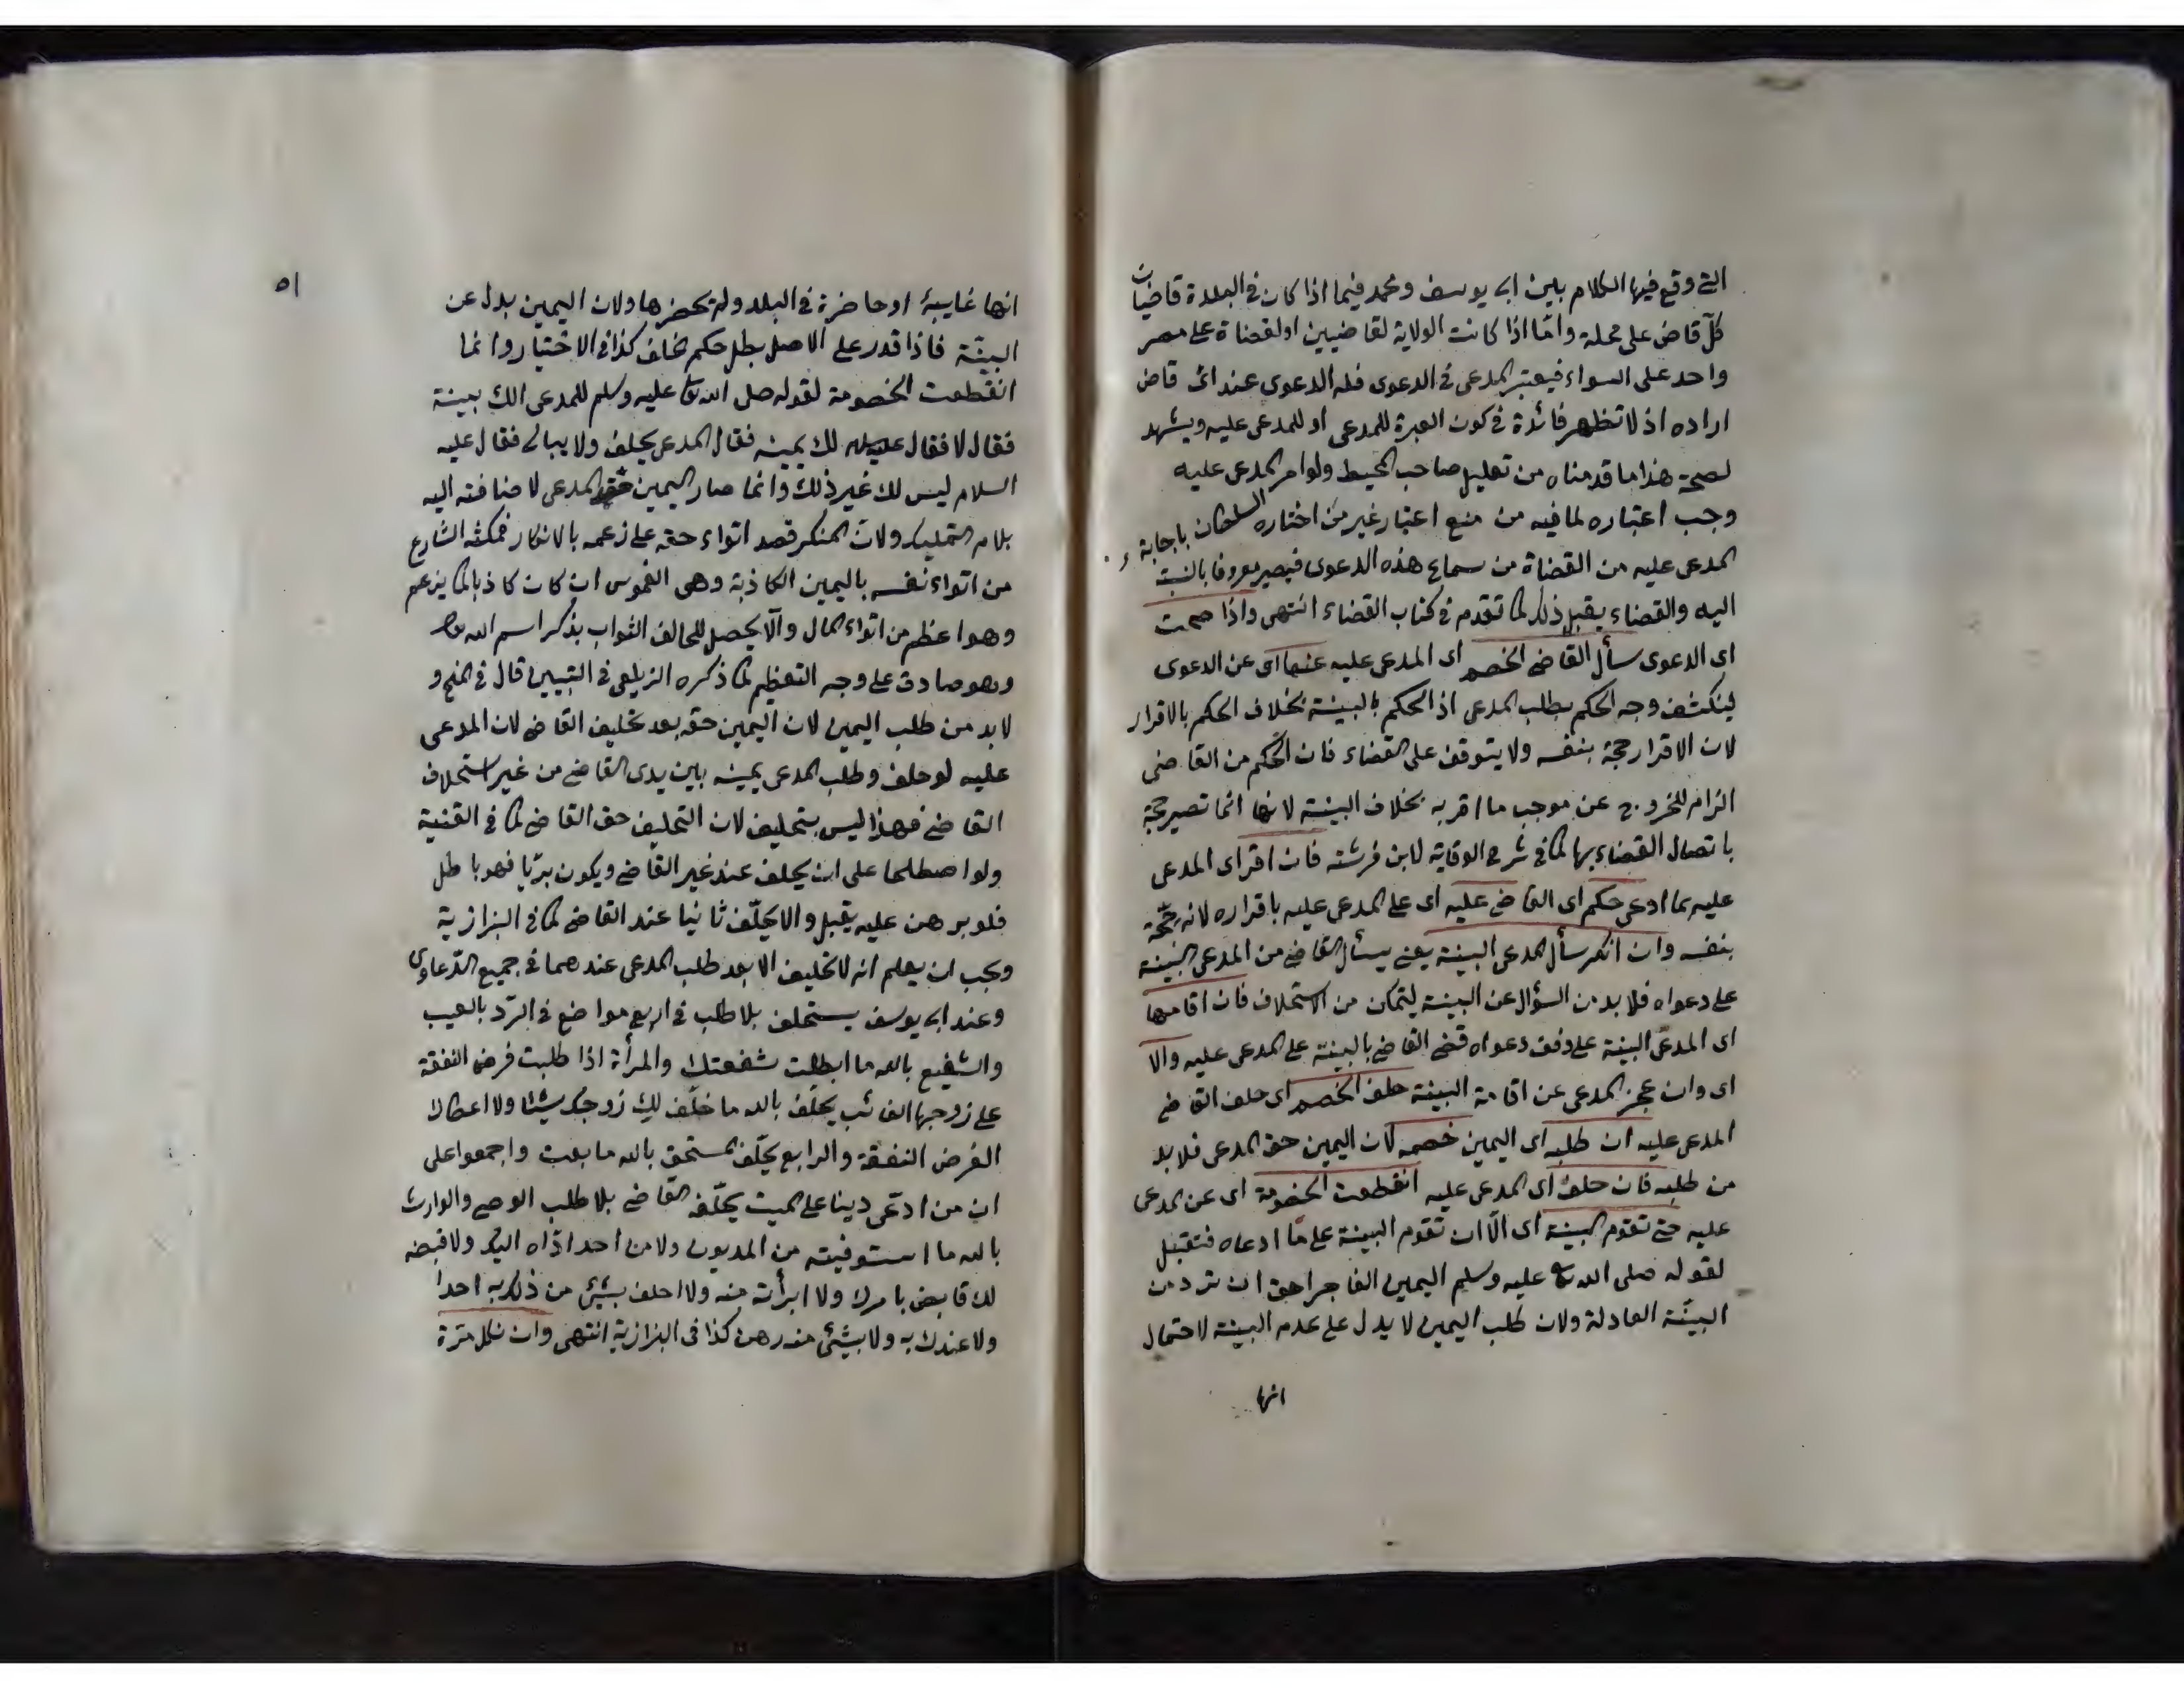 التي وقع فيها الكلام بين ابى يوسف ومحمد فيما اذا كان في البلدة قاضيان
كلّ قاض على محلة وامّا اذا كانت الولاية لقاضيين اولقضاة على مصر
واحد على السواء فيعتبر المدعى في الدعوى فله الدعوى عند اى قاض
اراده اذ لا تظهر فائدة في كون العبرة للمدعى او للمدعى عليه ويشهد
لصحة هذا ما قدمناه من تعليل صاحب المحيط ولو امر المدعى عليه
وجب اعتباره لما فيه من منع اعتبار غير من اختاره السلطان باجابة
المدعى عليه من القضاة من سماع هذه الدعوى فيصير معروفا بالنسبة
اليه والقضاء يقبل ذلك كما تقدم في كتاب القضاء انتهى واذا صحت
اى الدعوى سأل القاضي الخصم اى المدعى عليه عنها اى عن الدعوى
لينكشف وجه الحكم بطلب المدعى اذ الحكم بالبينة بخلاف الحكم بالاقرار
لان الاقرار حجة بنفسه ولا يتوقف على القضاء فان الحكم من القاضى
الزام للخروج عن موجب ما اقر به بخلاف البينة لانها انما تصير حجة
باتصال القضاء بها كما في شرح الوقاية لابن فرشته فان اقر اى المدعى
عليه بما ادعى حكم اى القاضي عليه اى على المدعى عليه باقراره لانه حجّة
بنفسه وان انكر سأل المدعى البينة يعنى يسأل القاضي من المدعى البينة
على دعواه فلا بد من السؤال عن البينة ليتمكن من الاستحلاف فان اقامها
اى المدعى البينة على وفق دعواه قضى القاضي بالبينة على المدعى عليه والا
اى وان عجز المدعى عن اقامة البينة حلف الخصم اى حلف القاضي
المدعى عليه ان طلبه اى اليمين خصمه لان اليمين حق المدعى فلا بد
من طلبه فان حلف اى المدعى عليه انقطعت الخصومة اى عن المدعى
عليه حتى تقوم البينة اى الّا ان تقوم البينة على ما ادعاه فتقبل
لقوله صلى الله تع عليه وسلم اليمين الفاجر احق ان ترد من
البيّنة العادلة ولان طلب اليمين لا يدل على عدم البينة لاحتمال
انها
٥١
انها غايبة او حاضرة في البلد ولم تحضرها ولان اليمين بدل عن
البيّنة فاذا قدر على الاصل بطل حكم الخلف كذا في الاختيار وانما
انقطعت الخصومة لقوله صلى الله تع عليه وسلم للمدعى الك بينة
فقال لا فقال عليه لك يمينه فقال المدعى يحلف ولا يبالى فقال عليه
السلام ليس لك غير ذلك وانما صار اليمين حق المدعى لاضافته اليه
بلام التمليك ولان المنكر قصد اتواء حقه على زعمه بالانكار فمكنه الشارع
من اتواء نفسه باليمين الكاذبة وهى الغموس ان كان كاذبا كما يزعم
وهو اعظم من اتواء المال والّا يحصل للحالف الثواب بذكر اسم الله تعالى
وهو صادق على وجه التعظيم كما ذكره الزيلعى في التبيين قال في المنح و
لا بد من طلب اليمين لان اليمين حقه بعد تحليف القاضي لان المدعى
عليه لو حلف وطلب المدعى يمينه بين يدى القاضي من غير استحلاف
القاضي فهذا ليس بتحليف لان التحليف حق القاضي كما في القنية
ولو اصطلحا على ان يحلف عند غير القاضي ويكون بريّا فهو باطل
فلو برهن عليه يقبل والا يحلّف ثانيا عند القاضي كما في البزازية
ويجب ان يعلم انه لا تحليف الا بعد طلب المدعى عندهما في جميع الدّعاوى
وعند ابى يوسف يستحلف بلا طلب في اربع مواضع في الرّد بالعيب
والشفيع بالله ما ابطلت شفعتك والمرأة اذا طلبت فرض النفقة
على زوجها الغائب يحلّف بالله ما خلّف لك زوجك شيئا ولا اعطاك
الفرض النفقة والرابع يحلّف المستحق بالله ما بعت واجمعوا على
ان من ادّعى دينا على الميت يحلّفه القاضي بلا طلب الوصى والوارث
بالله ما استوفيته من المديون ولا من احد ادّاه اليك ولا قبضه
لك قابض بامرك ولا ابرأته منه ولا احلف بشئ من ذلك به احدا
ولا عندك به ولا بشئ منه رهن كذا في البزازية انتهى وان نكل مرّة